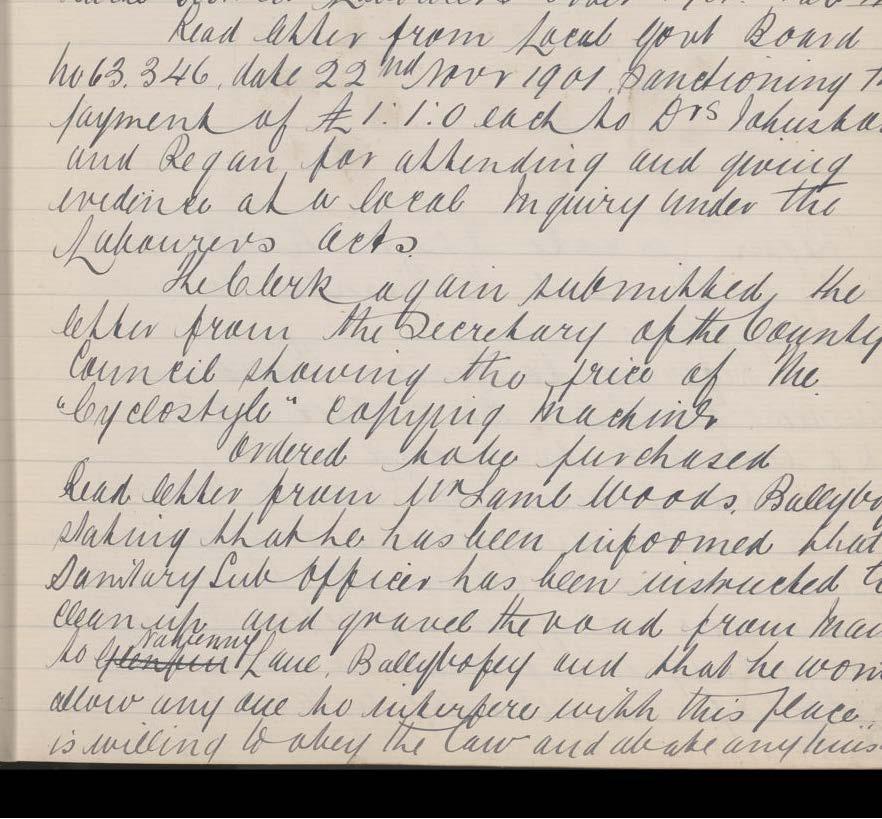 Read letter from Local Govt Board
No 63.346, date 22nd Novr 1901, Sanctioning
payment of £1:1:0 each to Drs Johnston
and Regan for attending and giving
evidence at a local Inquiry under the
Labourers Acts.
The Clerk again submitted the
letter from the Secretary of the County
Council showing the price of the
"Cyclostyle" copying machine
Ordered to be purchased
Read letter from Mr Lamb Woods, Ballybo
stating that he has been infoomed that
Sanitary Sub Officer has been instructed
clean up and gravel the road from Mai
Navenny
to Glenfin Lane, Ballybofey and that he won
allow any one to interfere with this place,
is willing to obey the law and abate any nuis